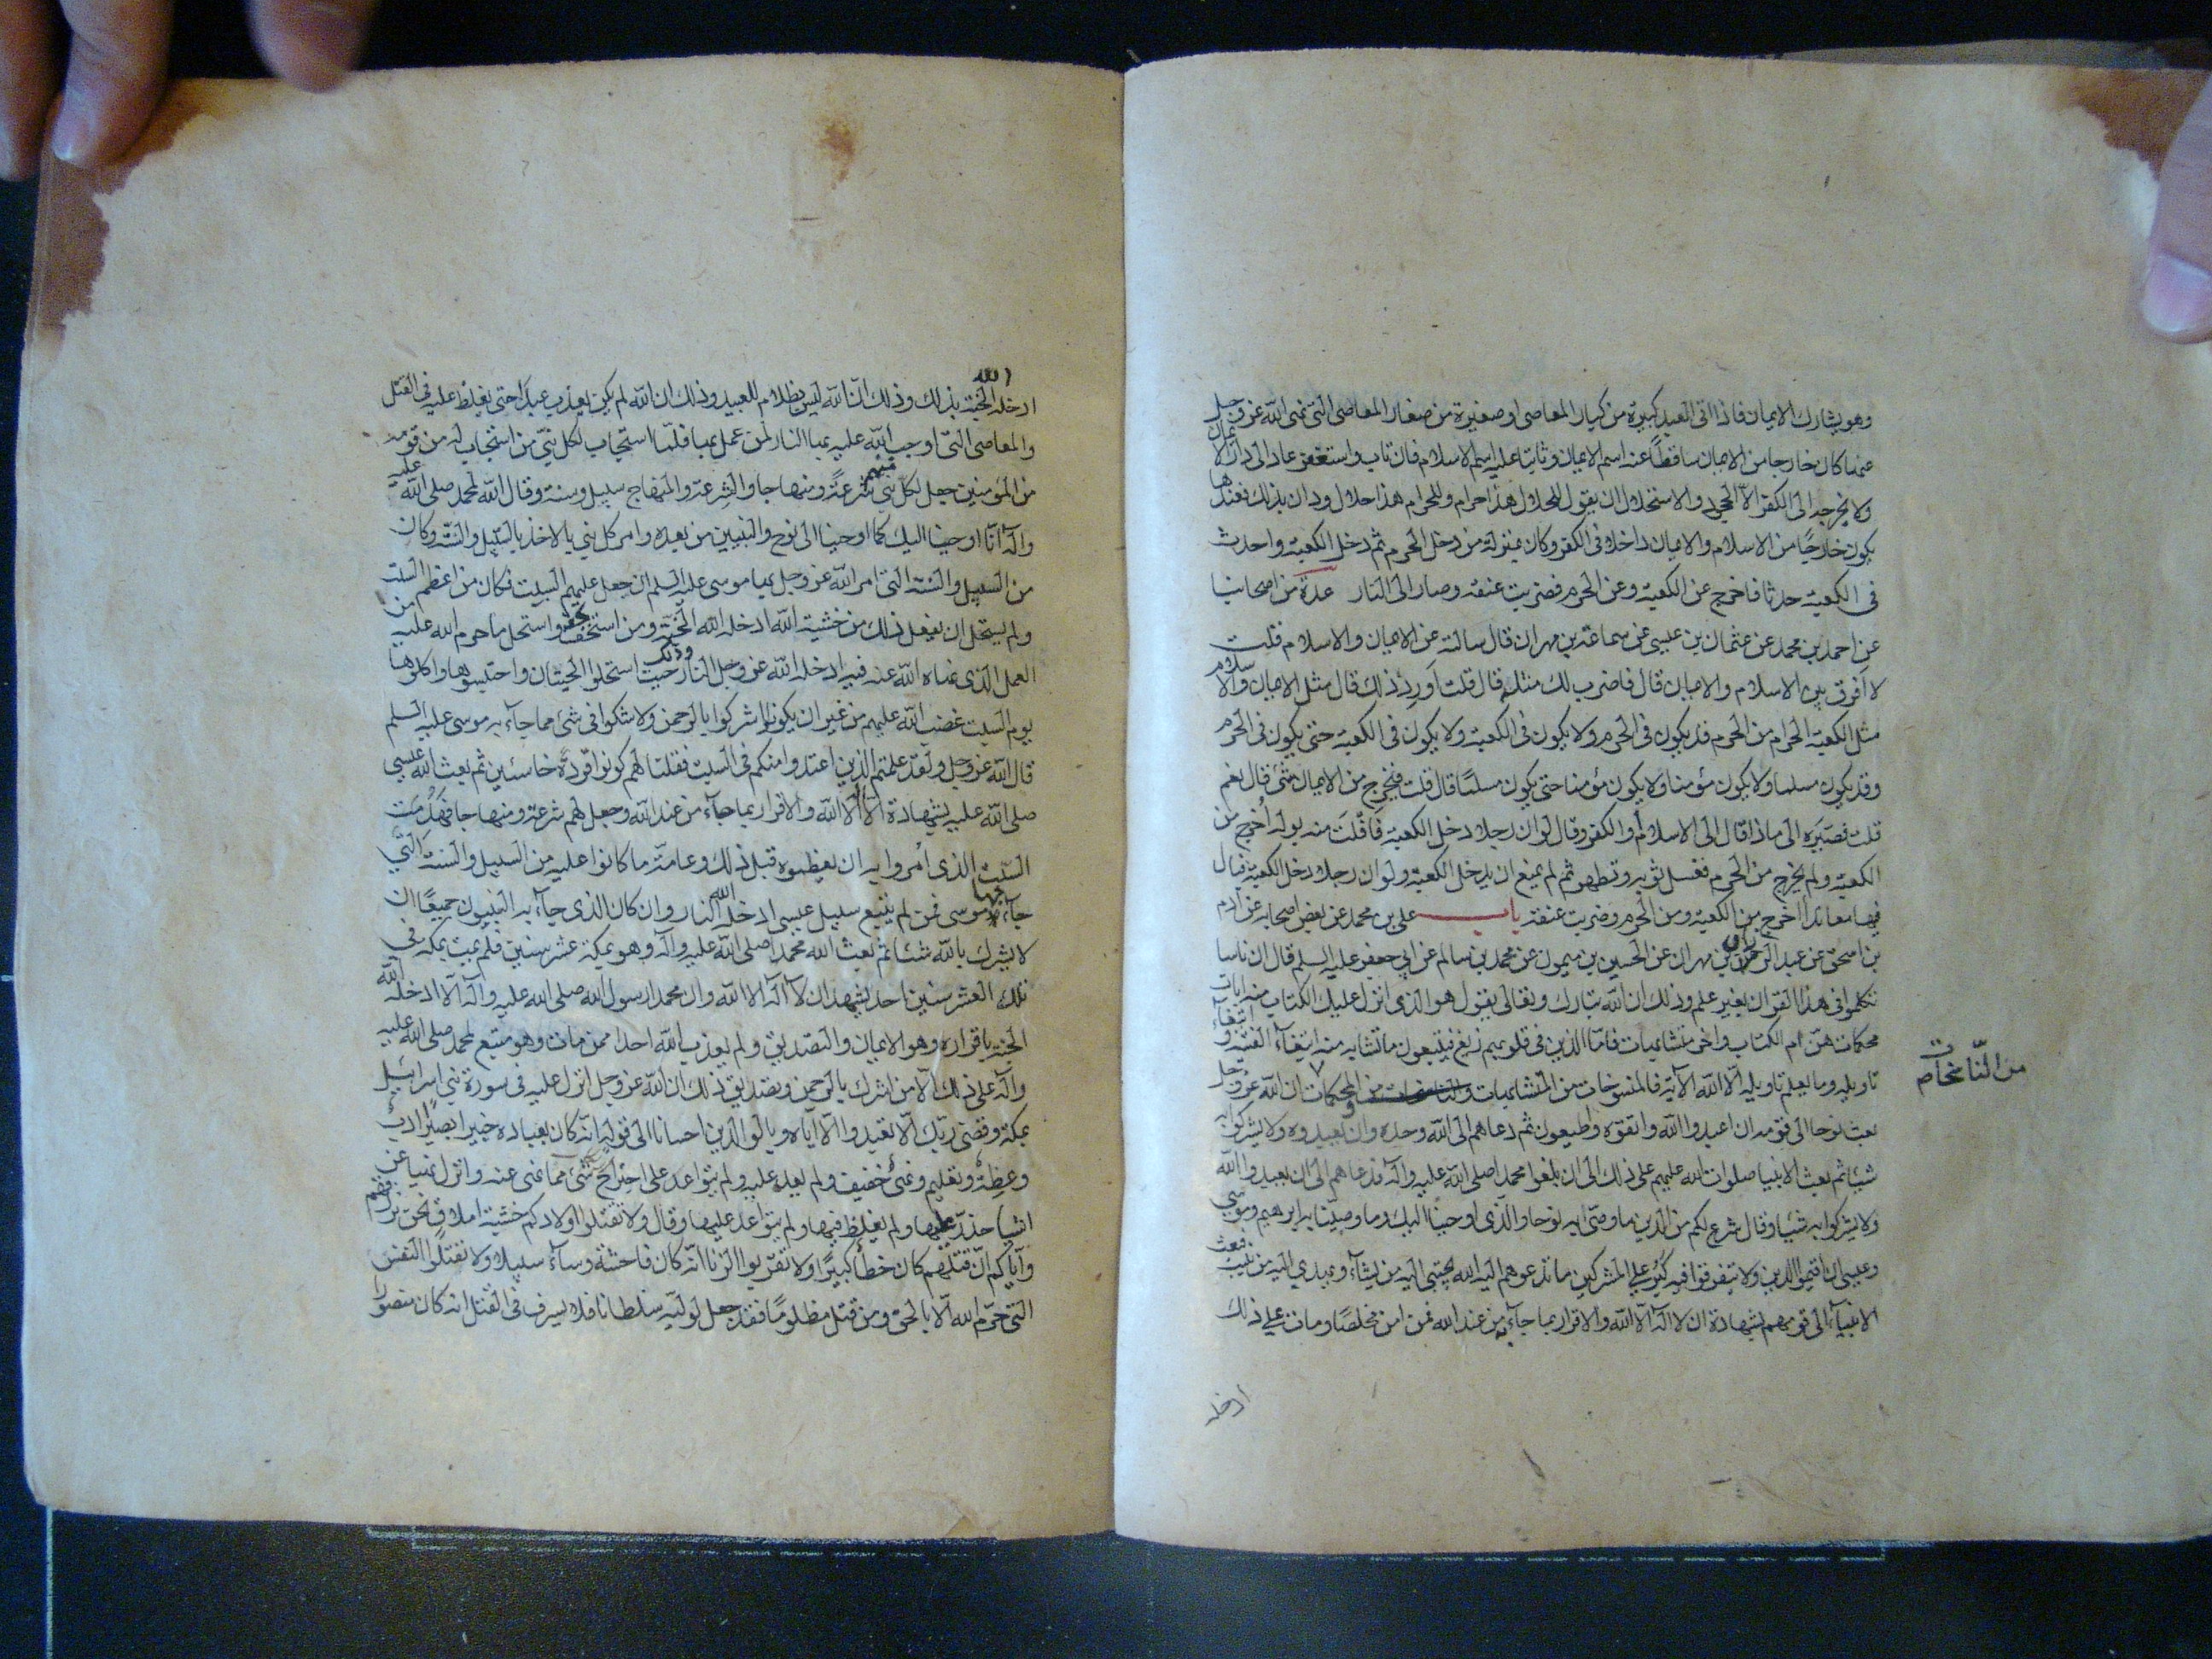 وهو يشارك الايمان فاذا اتى العبد كبيرة من كبار المعاصى او صغيرة من صغار المعاصى التى نهى الله عز وجل
عنها كان خارجا من الايمان ساقطا عنه اسم الايمان وثابتا عليه اسم الاسلام فان تاب واستغفر عاد الى دار الايمان
ولا يخرجه الى الكفر الا الجحود والاستحلال ان يقول للحلال هذا حرام وللحرام هذا حلال ودان بذلك فعندها
يكون خارجا من الاسلام والايمان داخلا فى الكفر وكان بمنزلة من دخل الحرم ثم دخل الكعبة واحدث
فى الكعبة حدثا فاخرج عن الكعبة وعن الحرم فضربت عنقه وصار الى النار عدة من اصحابنا
عن احمد بن محمد عن عثمان بن عيسى عن سماعة بن مهران قال سالته عن الايمان والاسلام قلت
لا فرق بين الاسلام والايمان قال فاضرب لك مثله قال قلت اورد ذلك قال مثل الايمان والاسلام
مثل الكعبة الحرام من الحرم قد يكون فى الحرم ولا يكون فى الكعبة ولا يكون فى الكعبة حتى يكون فى الحرم
وقد يكون مسلما ولا يكون مؤمنا ولا يكون مؤمنا حتى يكون مسلما قال قلت فيخرج من الايمان شئ قال نعم
قلت فصيره الى ماذا قال الى الاسلام او الكفر وقال لو ان رجلا دخل الكعبة فافلت منه بوله اخرج من
الكعبة ولم يخرج من الحرم فغسل ثوبه وتطهر ثم لم يمنع ان يدخل الكعبة ولو ان رجلا دخل الكعبة فبال
فيها معاندا اخرج من الكعبة ومن الحرم وضربت عنقه باب على بن محمد عن بعض اصحابه عن ادم
بن اسحق عن عبد الرزاق بن مهران عن الحسين بن ميمون عن محمد بن سالم عن ابى جعفر عليه السلم قال ان ناسا
تكلموا فى هذا القران بغير علم وذلك ان الله تبارك وتعالى يقول هو الذى انزل عليك الكتاب منه ايات
محكمات هن ام الكتاب واخر متشابهات فاما الذين فى قلوبهم زيغ فيتبعون ما تشابه منه ابتغاء الفتنة وابتغاء
تاويله وما يعلم تاويله الا الله الاية فالمنسوخات من المتشابهات والمحكمات ان الله عز وجل
من الناسخات
بعث نوحا الى قومه ان اعبدوا الله واتقوه واطيعون ثم دعاهم الى الله وحده وان يعبدوه ولا يشركوا به
شيئا ثم بعث الانبيا صلوات الله عليهم على ذلك الى ان بلغوا محمدا صلى الله عليه واله فدعاهم الى ان يعبدوا الله
ولا يشركوا به شيئا وقال شرع لكم من الدين ما وصى به نوحا والذى اوحينا اليك وما وصينا به ابرهيم وموسى
وعيسى ان اقيموا الدين ولا تتفرقوا فيه كبر على المشركين ما تدعوهم اليه الله يجتبى اليه من يشاء ويهدى اليه من ينيب فبعث
الانبياء الى قومهم بشهادة ان لا اله الا الله والاقرار بما جاء به من عند الله فمن امن مخلصا ومات على ذلك
ادخله
ادخله الله الجنة بذلك وذلك ان الله ليس بظلام للعبيد وذلك ان الله لم يكن يعذب عبدا حتى يغلظ عليه فى القتل
والمعاصى التى اوجب الله عليه بها النار لمن عمل بها فلما استجاب لكل نبى من استجاب له من قومه
من المؤمنين جعل لكل نبى منهم شرعة ومنهاجا والشرعة والمنهاج سبيل وسنة وقال الله لمحمد صلى الله عليه
واله انا اوحينا اليك كما اوحينا الى نوح والنبيين من بعده وامر كل نبى بالاخذ بالسبيل والسنة وكان
من السبيل والسنة التى امر الله عز وجل بها موسى عليه السلم ان جعل عليهم السبت فكان من اعظم السبت
ولم يستحل ان يفعل ذلك من خشية الله ادخله الله الجنة ومن استخف بحقه واستحل ما حرم الله عليه من
العمل الذى نهاه الله عنه فيه ادخله الله عز وجل النار وذلك حيث استحلوا الحيتان واحتبسوها واكلوها
يوم السبت غضب الله عليهم من غير ان يكونوا اشركوا بالرحمن ولا شكوا فى شئ مما جاء به موسى عليه السلم
قال الله عز وجل ولقد علمتم الذين اعتدوا منكم فى السبت فقلنا لهم كونوا قردة خاسئين ثم بعث الله عيسى
صلى الله عليه بشهادة ان لا اله الا الله والاقرار بما جاء من عند الله وجعل لهم شرعة ومنهاجا فهدمت
السبت الذى امروا به ان يعظموه قبل ذلك وعامة ما كانوا عليه من السبيل والسنة التى
جاء بها موسى فمن لم يتبع سبيل عيسى ادخله الله النار وان كان الذى جاء به النبيون جميعا ان
لا يشرك بالله شيئا ثم بعث الله محمدا صلى الله عليه واله وهو بمكة عشر سنين فلم يمت بمكة فى
تلك العشر سنين احد يشهد ان لا اله الا الله وان محمدا رسول الله صلى الله عليه واله الا ادخله الله
الجنة باقراره وهو الايمان والتصديق ولم يعذب الله احدا ممن مات وهو متبع لمحمد صلى الله عليه
واله على ذلك الا من اشرك بالرحمن وتصديق ذلك ان الله عز وجل انزل عليه فى سورة بنى اسرائيل
بمكة وقضى ربك الا تعبدوا الا اياه وبالوالدين احسانا الى قوله انه كان بعباده خبيرا بصيرا ادب
وعظة وتعليم ونهى خفيف ولم يعد عليه ولم يتواعد على اجتراح شئ مما نهى عنه وانزل نهيا عن
اشيا حذر عليها ولم يغلظ فيها ولم يتواعد عليها وقال ولا تقتلوا اولادكم خشية املاق نحن نرزقهم
واياكم ان قتلهم كان خطأ كبيرا ولا تقربوا الزنا انه كان فاحشة وساء سبيلا ولا تقتلوا النفس
التى حرم الله الا بالحق ومن قتل مظلوما فقد جعل لوليه سلطانا فلا يسرف فى القتل انه كان منصورا